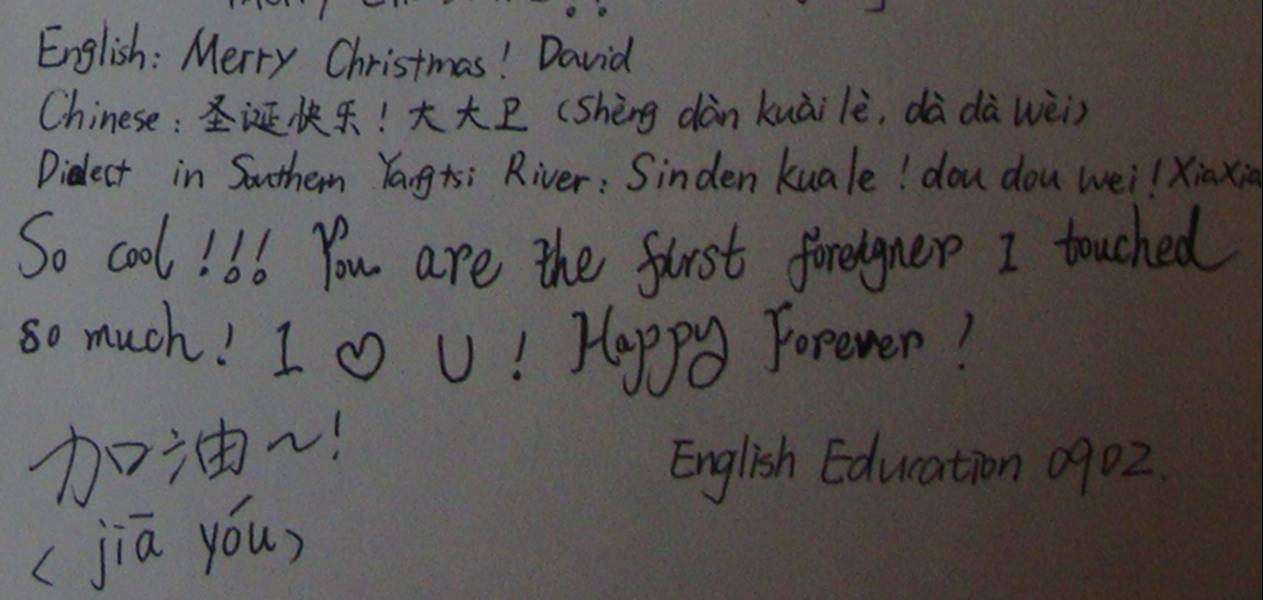 English: Merry Christmas! David
Chinese: 圣诞快乐! 大大卫 (Shèng dàn kuài lè, dà dà wèi)
Dialect in Southern Yangtsi River: Sinden kuale! dou dou wei! XiaXia
So cool!!! You are the first foreigner I touched
so much! I ♡ U! Happy Forever!
加油~!
English Education 0902.
(jiā yóu)